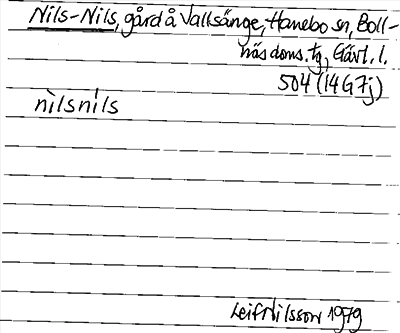 Nils-Nils, gård å Vallsänge, Hanebo sn, Boll-
näs doms. tg, Gävl. l.
504 (14G7j)
nilsnils
Leif Nilsson 1979